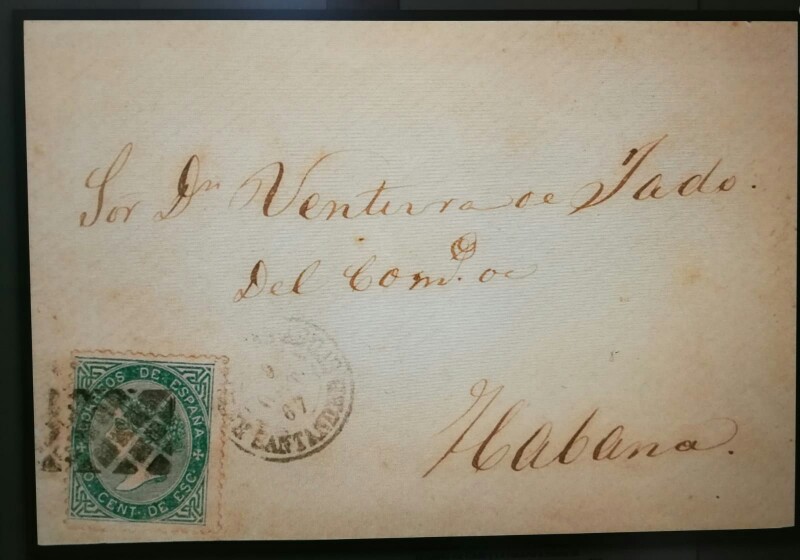 Sor Dn Ventura de Jado.
Del Como. de
Habana.
CORREOS DE ESPAÑA
CENT. DE ESC.
67
SANTANDER